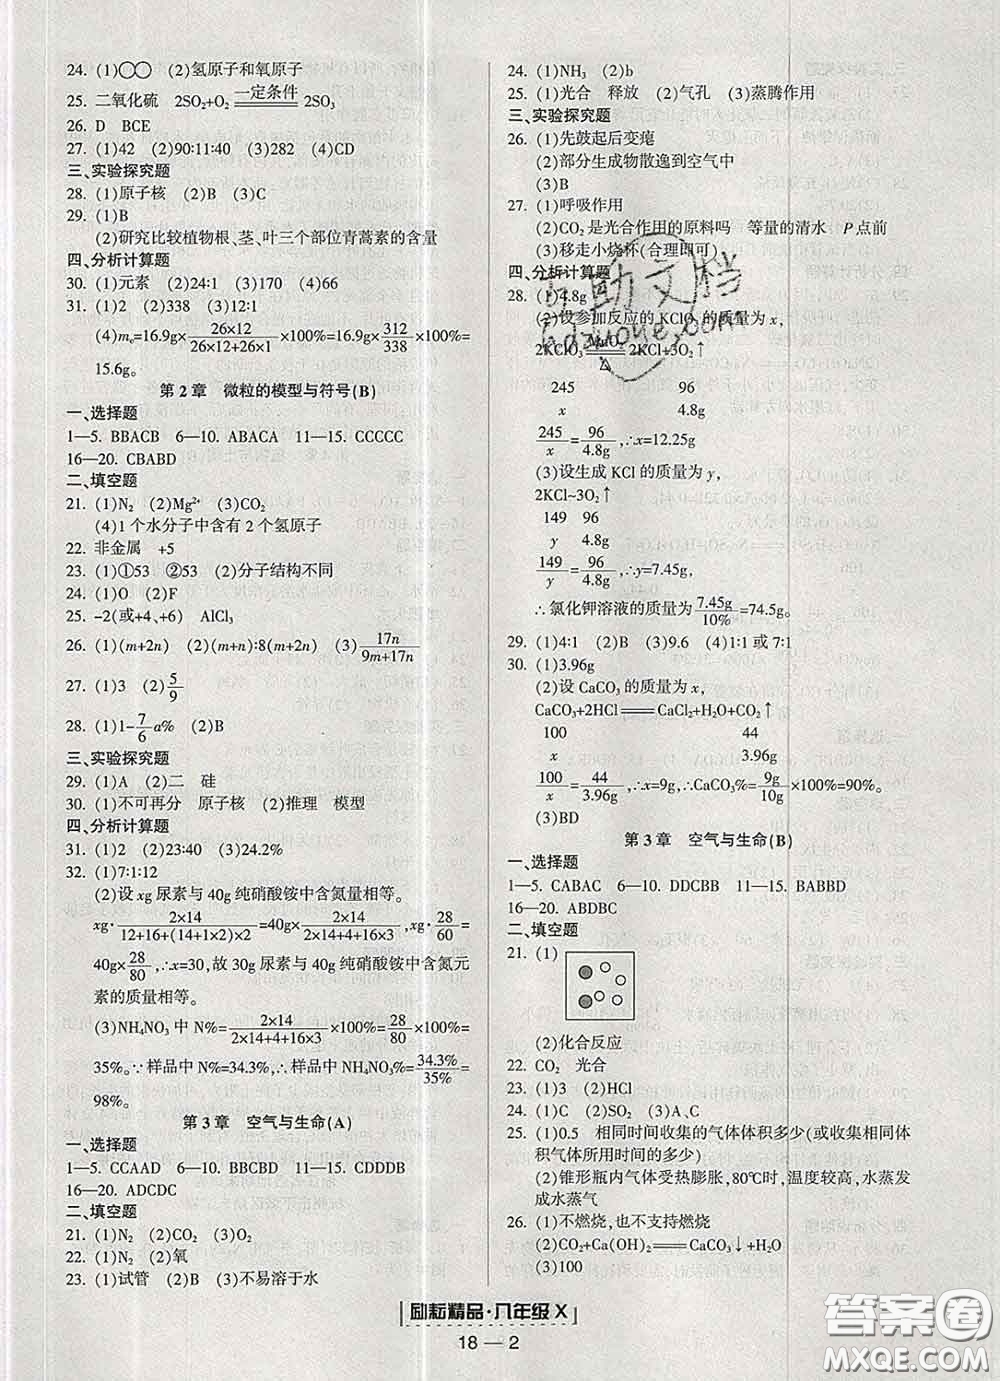 24. (1)○○ (2)氢原子和氧原子
25. 二氧化硫 2SO₂+O₂ 一定条件 2SO₃
26. D BCE
27. (1)42 (2)90∶11∶40 (3)282 (4)CD
三、实验探究题
28. (1)原子核 (2)B (3)C
29. (1)B
(2)研究比较植物根、茎、叶三个部位青蒿素的含量
四、分析计算题
30. (1)元素 (2)24∶1 (3)170 (4)66
31. (1)2 (2)338 (3)12∶1
(4)mc=16.9g×26×12/(26×12+26×1)×100%=16.9g×312/338×100%=
15.6g。
第 2 章 微粒的模型与符号(B)
一、选择题
1—5. BBACB 6—10. ABACA 11—15. CCCCC
16—20. CBABD
二、填空题
21. (1)N₂ (2)Mg²⁺ (3)CO₂
(4)1 个水分子中含有 2 个氢原子
22. 非金属 +5
23. (1)①53 ②53 (2)分子结构不同
24. (1)O (2)F
25. -2(或+4、+6) AlCl₃
26. (1)(m+2n) (2)(m+n)∶8(m+2n) (3)17n/(9m+17n)
27. (1)3 (2)5/9
28. (1)1-7/6 a% (2)B
三、实验探究题
29. (1)A (2)二 硅
30. (1)不可再分 原子核 (2)推理 模型
四、分析计算题
31. (1)2 (2)23∶40 (3)24.2%
32. (1)7∶1∶12
(2)设 xg 尿素与 40g 纯硝酸铵中含氮量相等。
xg·2×14/(12+16+(14+1×2)×2)=40g×2×14/(2×14+4+16×3),xg×28/60=
40g×28/80,∴x=30,故 30g 尿素与 40g 纯硝酸铵中含氮元
素的质量相等。
(3)NH₄NO₃ 中 N%=2×14/(2×14+4+16×3)×100%=28/80×100%=
35%。∵样品中 N%=34.3%,∴样品中NH₄NO₃%=34.3%/35%=
98%。
第 3 章 空气与生命(A)
一、选择题
1—5. CCAAD 6—10. BBCBD 11—15. CDDDB
16—20. ADCDC
二、填空题
21. (1)N₂ (2)CO₂ (3)O₂
22. (1)N₂ (2)氧
23. (1)试管 (2)B (3)不易溶于水
24. (1)NH₃ (2)b
25. (1)光合 释放 (2)气孔 (3)蒸腾作用
三、实验探究题
26. (1)先鼓起后变瘪
(2)部分生成物散逸到空气中
(3)B
27. (1)呼吸作用
(2)CO₂ 是光合作用的原料吗 等量的清水 P 点前
(3)移走小烧杯(合理即可)
四、分析计算题
28. (1)4.8g
(2)设参加反应的 KClO₃ 的质量为 x,
2KClO₃ MnO₂ △ 2KCl+3O₂↑
245 96
x 4.8g
245/x=96/4.8g,∴x=12.25g
(3)设生成 KCl 的质量为 y,
2KCl~3O₂↑
149 96
y 4.8g
149/y=96/4.8g,∴y=7.45g,
∴氯化钾溶液的质量为7.45g/10%=74.5g。
29. (1)4∶1 (2)B (3)9.6 (4)1∶1 或 7∶1
30. (1)3.96g
(2)设 CaCO₃ 的质量为 x,
CaCO₃+2HCl══CaCl₂+H₂O+CO₂↑
100 44
x 3.96g
100/x=44/3.96g,∴x=9g,∴CaCO₃%=9g/10g×100%=90%。
(3)BD
第 3 章 空气与生命(B)
一、选择题
1—5. CABAC 6—10. DDCBB 11—15. BABBD
16—20. ABDBC
二、填空题
21. (1)
(2)化合反应
22. CO₂ 光合
23. (1)3 (2)HCl
24. (1)C (2)SO₂ (3)A、C
25. (1)0.5 相同时间收集的气体体积多少(或收集相同体
积气体所用时间的多少)
(2)锥形瓶内气体受热膨胀,80℃时,温度较高,水蒸发
成水蒸气
26. (1)不燃烧,也不支持燃烧
(2)CO₂+Ca(OH)₂══CaCO₃↓+H₂O
(3)100
励耘精品·八年级 X
18 — 2
答案圈
MXQE.COM